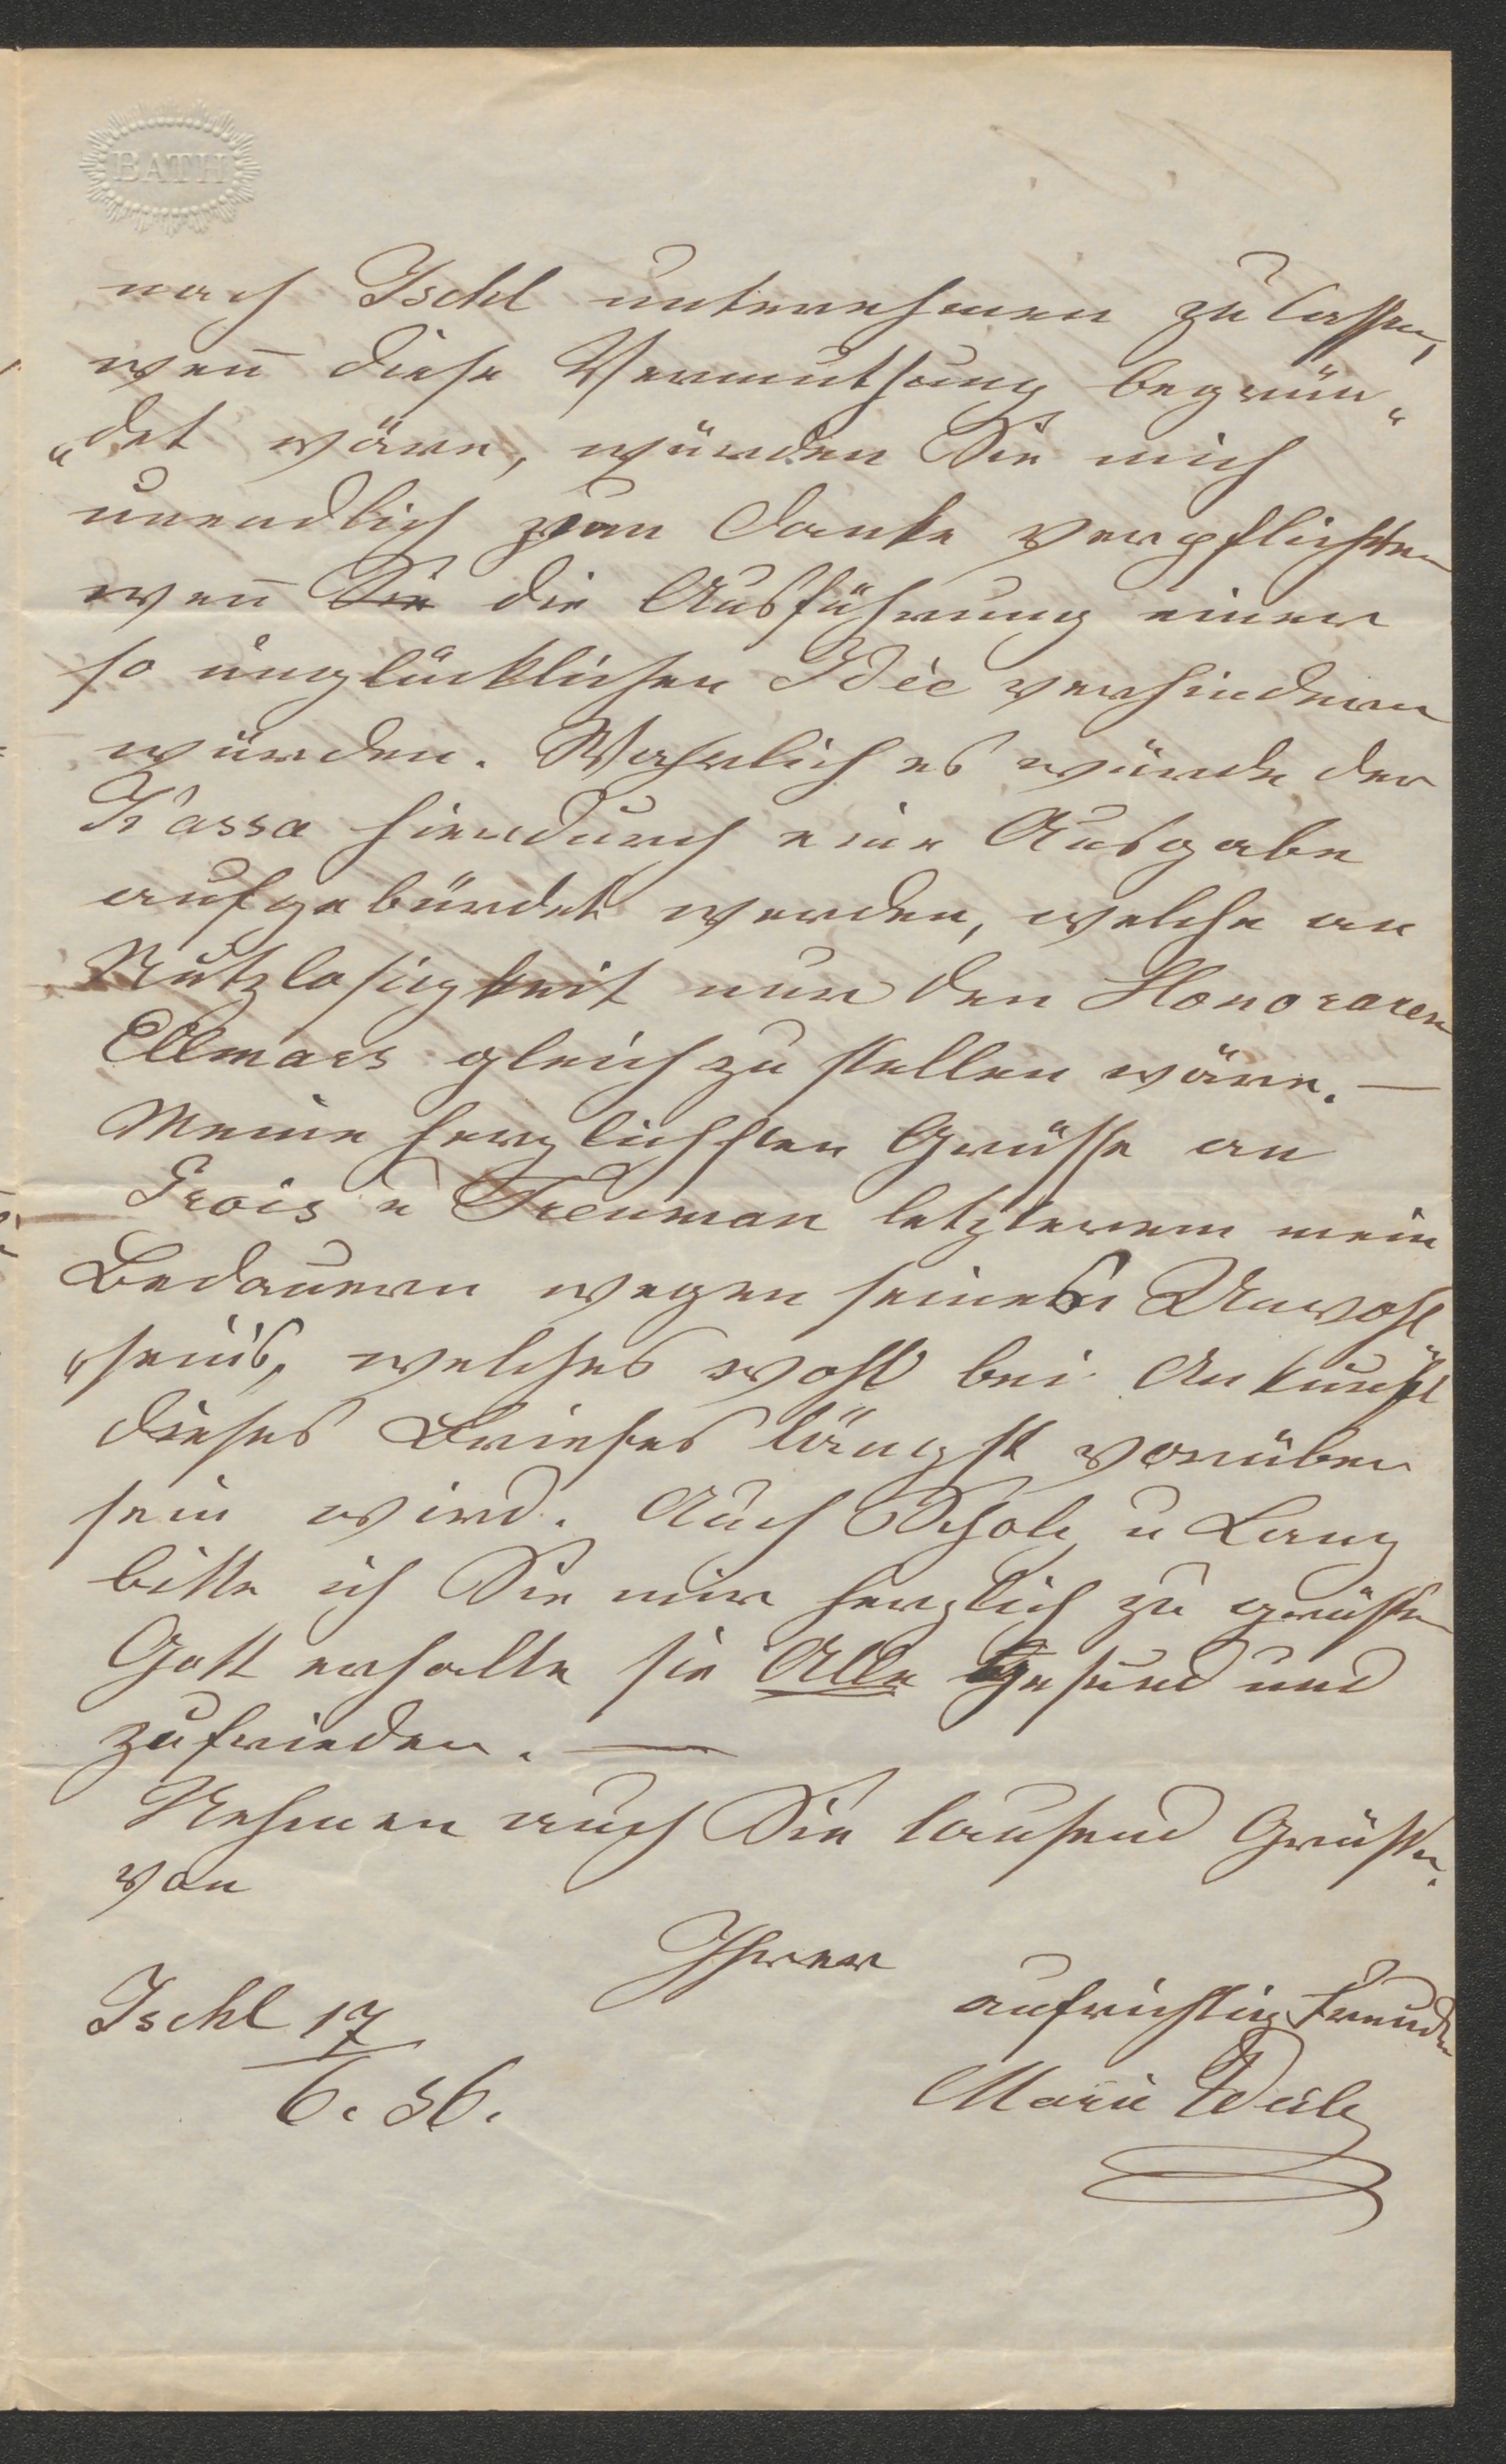 BATH
nach Ischl unternehmen zu lassen,
wen̄ diese Vermuthung begrün„
„det wäre, würden Sie mich
unendlich zum Danke verpflichten
wen̄ Sie die Ausführung einer
so unglücklichen Idée verhindern
würden. Wahrlich es würde der
Kassa hierdurch eine Ausgabe
aufgebürdet werden, welche an
Nutzlosigkeit nur den Honoraren
Ellmars gleich zu stellen wäre. —
Meine herzlichsten Grüsse an
Grois u Treuman letzterem mein
Bedauern wegen seines Unwohl„
„seins, welches wohl bei Ankunft
dieses Briefes längst vorüber
sein wird. Auch Scholz u Lang
bitte ich Sie mir herzlich zu grüssen
Gott erhalte sie Alle Gesund und
zufrieden. —
Nehmen auch Sie tausend Grüsse.
von
Ihrer
aufrichtig Freundin
Ischl 17/6. 56.
Marie Weiler